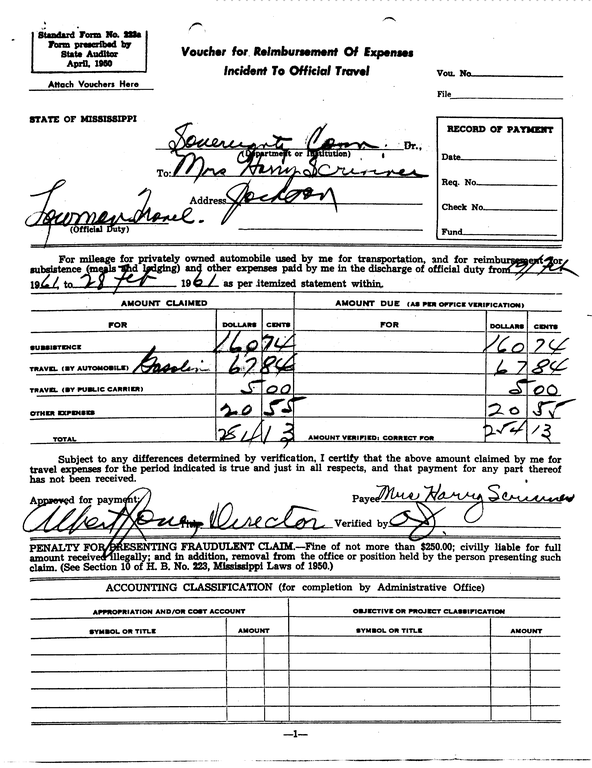 Standard Form No. 223a
Form prescribed by
State Auditor
April, 1950
Attach Vouchers Here
Voucher for Reimbursement Of Expenses
Incident To Official Travel
Vou. No.
File
STATE OF MISSISSIPPI
RECORD OF PAYMENT
Date
Req. No.
Check No.
Fund
Sovereignty Comm. Dr.,
(Department or Institution)
To: Mrs Harry Scrivner
Address Jackson
Travel.
(Official Duty)
For mileage for privately owned automobile used by me for transportation, and for reimbursement for
subsistence (meals and lodging) and other expenses paid by me in the discharge of official duty from Feb
1961, to 28 Feb 1961 as per itemized statement within.
AMOUNT CLAIMED AMOUNT DUE (AS PER OFFICE VERIFICATION)
FOR DOLLARS CENTS FOR DOLLARS CENTS
SUBSISTENCE 160 74 160 74
TRAVEL (BY AUTOMOBILE) Gasoline 67 84 67 84
TRAVEL (BY PUBLIC CARRIER) 5 00 5 00
OTHER EXPENSES 20 55 20 55
TOTAL 254 13 AMOUNT VERIFIED; CORRECT FOR 254 13
Subject to any differences determined by verification, I certify that the above amount claimed by me for
travel expenses for the period indicated is true and just in all respects, and that payment for any part thereof
has not been received.
Approved for payment: Payee Mrs Harry Scrivner
Albert Jones Director Verified by
PENALTY FOR PRESENTING FRAUDULENT CLAIM.—Fine of not more than $250.00; civilly liable for full
amount received illegally; and in addition, removal from the office or position held by the person presenting such
claim. (See Section 10 of H. B. No. 223, Mississippi Laws of 1950.)
ACCOUNTING CLASSIFICATION (for completion by Administrative Office)
APPROPRIATION AND/OR COST ACCOUNT OBJECTIVE OR PROJECT CLASSIFICATION
SYMBOL OR TITLE AMOUNT SYMBOL OR TITLE AMOUNT
—1—